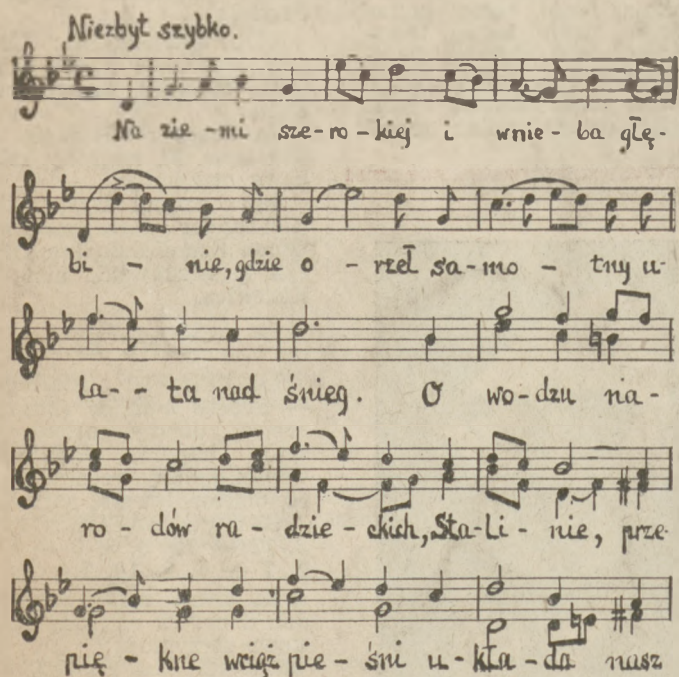 Niezbyt szybko.
Na zie-mi sze-ro-kiej i wnie-ba głę-
bi - nie, gdzie o - rzeł sa-mo - tny u-
la-- ta nad śnieg. O wo-dzu na-
ro-dów ra-dzie-ckich, Sta-li-nie, prze-
pię - kne wciąż pie-śni u-kła-da nasz